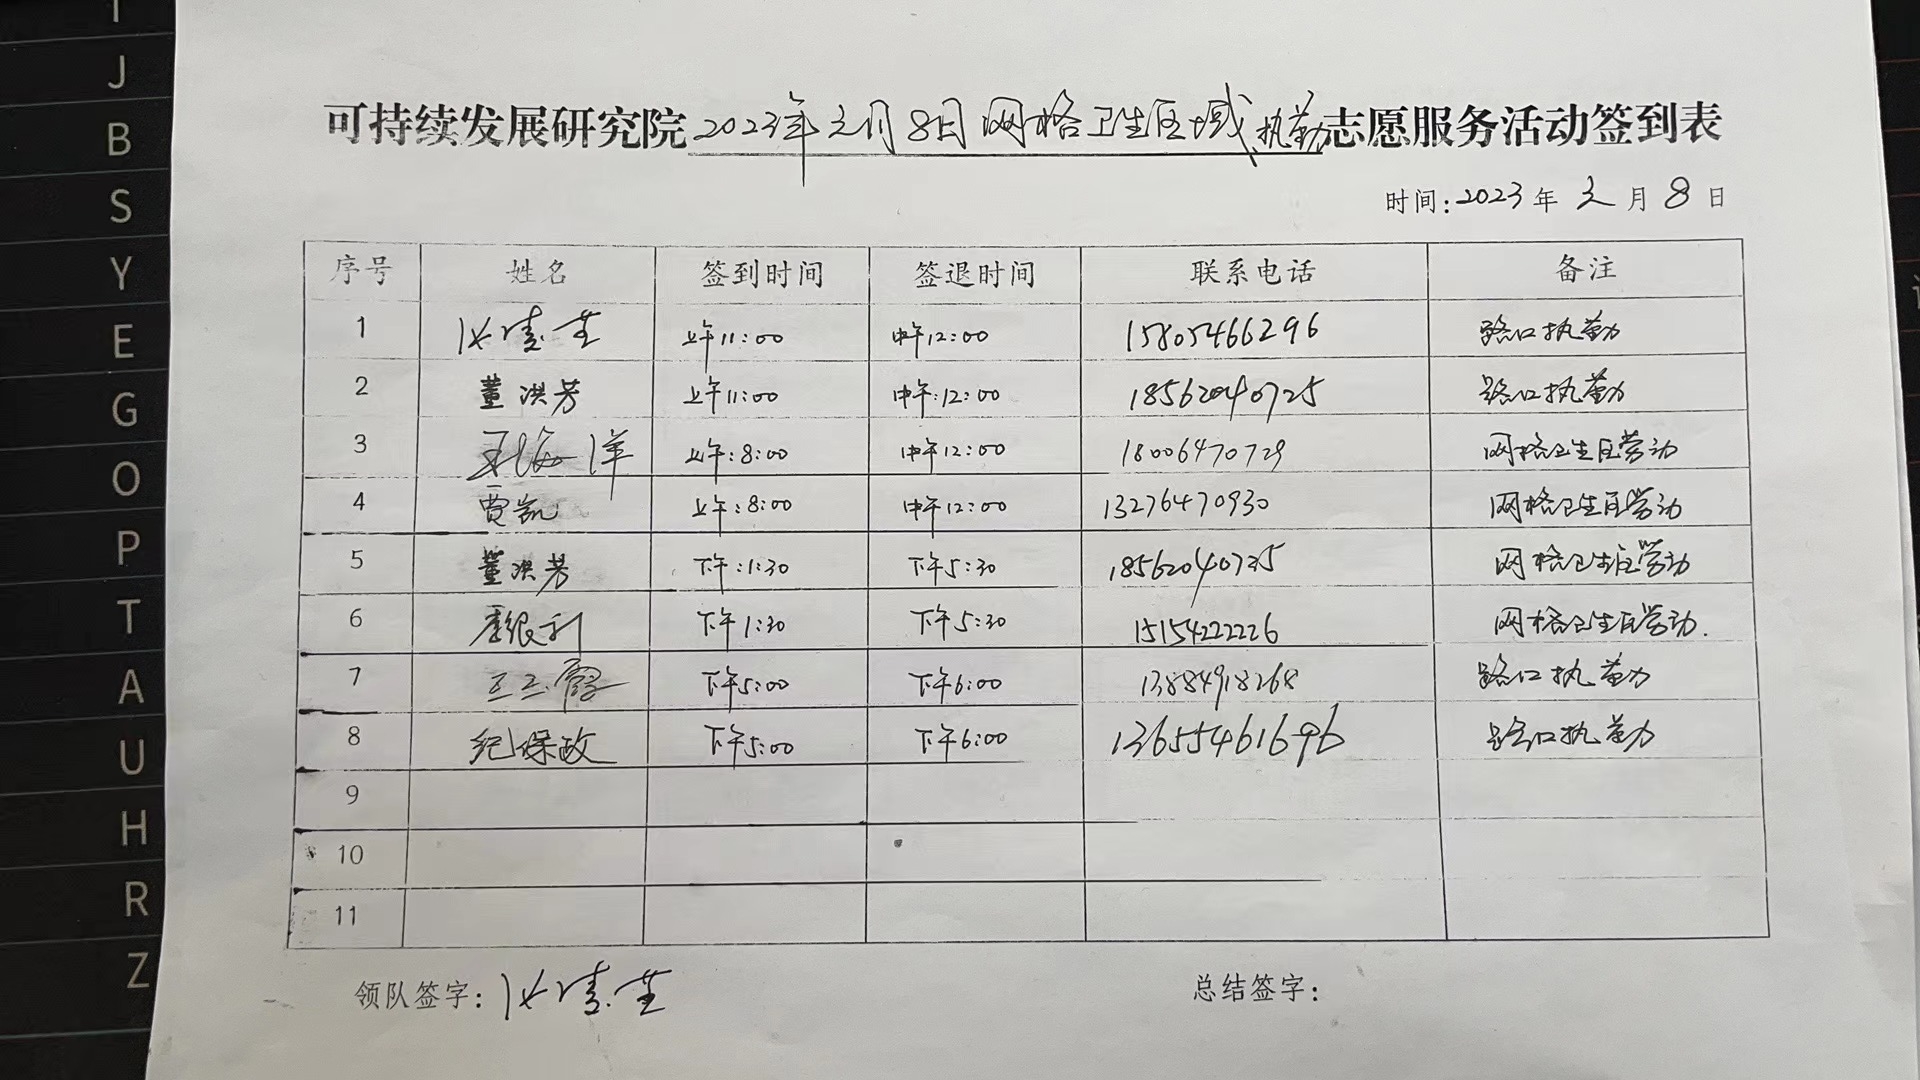 T
J
B
S
Y
E
G
O
P
T
A
U
H
R
Z
可持续发展研究院2023年2月8日网格卫生区域、执勤志愿服务活动签到表
时间:2023年2月8日
序号 姓名 签到时间 签退时间 联系电话 备注
1 上午11:00 中午12:00 15805466296 路口执勤
2 董洪芳 上午11:00 中午:12:00 18562040725 路口执勤
3 海洋 上午:8:00 中午12:00 18006470729 网格卫生区劳动
4 贾凯 上午:8:00 中午12:00 13276470930 网格卫生区劳动
5 董洪芳 下午:1:30 下午5:30 18562040725 网格卫生区劳动
6 李银利 下午1:30 下午5:30 15154222226 网格卫生区劳动.
7 下午5:00 下午6:00 13884918268 路口执勤
8 纪保政 下午5:00 下午6:00 13655461696 路口执勤
9
10
11
领队签字: 总结签字: